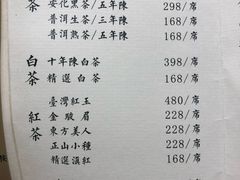 茶 安化黑茶/五年陳 298/席
普洱生茶/三年陳 168/席
普洱熟茶/五年陳 168/席
白茶 十年陳白茶 398/席
精選白茶 168/席
紅茶 臺灣紅玉 480/席
金駿眉 228/席
東方美人 228/席
正山小種 228/席
精選滇紅 168/席